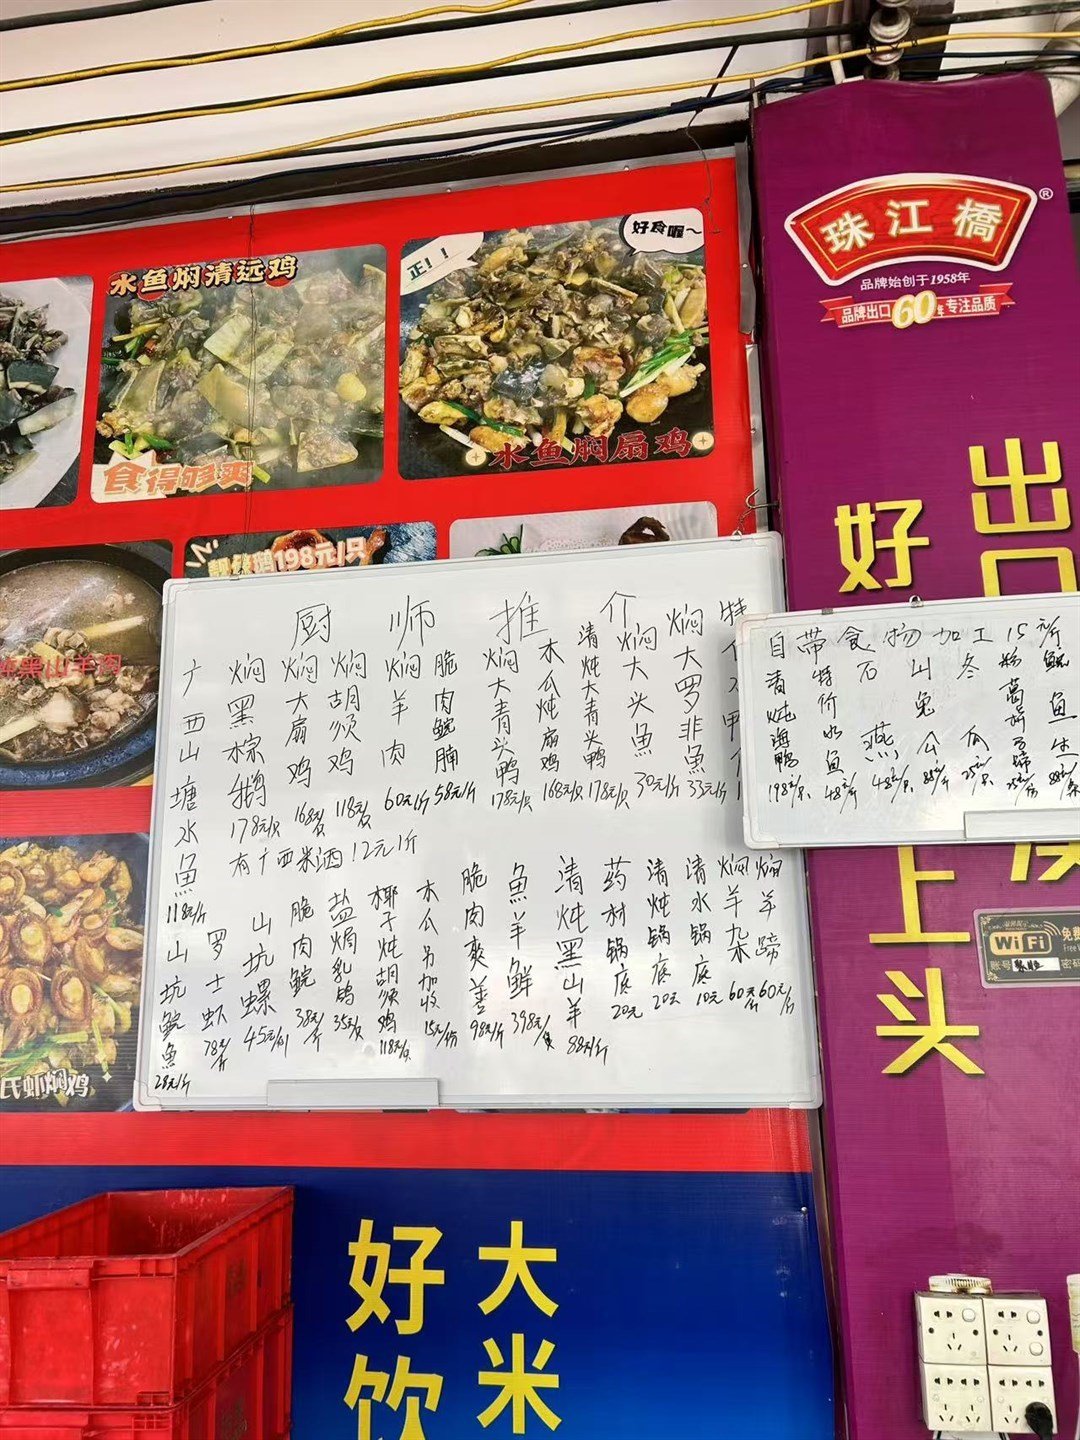 水鱼焖清远鸡
食得够爽
正！！
好食喔~
水鱼焖扇鸡
珠江橋
®
品牌始创于1958年
品牌出口60年专注品质
出口
好
上头
198元/只
黑山羊肉
氏虾焖鸡
厨师推介
广西山塘水魚118元/斤
焖黑棕鹅178元/只
焖大扇鸡168元/只
焖胡须鸡118元/只
焖羊肉60元/斤
脆肉鲩腩58元/斤
焖大青头鸭178元/只
木瓜炖扇鸡168元/只
清炖大青头鸭178元/只
焖大头魚30元/斤
焖大罗非魚33元/斤
特
有广西米酒12元1斤
山坑鲩魚28元/斤
罗士虾78元/斤
山坑螺45元/
脆肉鲩38元/斤
盐焗乳鸽35元/只
椰子炖胡须鸡118元/只
木瓜 15元/份
脆肉爽 98元/斤
魚羊鲜398元/
清炖黑山羊88元/斤
药材锅底20元
清炖锅底20元
清水锅底10元
焖羊杂60元/斤
焖羊蹄60元/斤
自带食物加工15元/
清炖海鸭198元/只
特价水鱼48元/斤
石 燕48元/只
山兔 88元/斤
冬瓜25元/
粉葛 25元/份
鱼
WiFi
免费
Free
账号
密码
大米
好饮